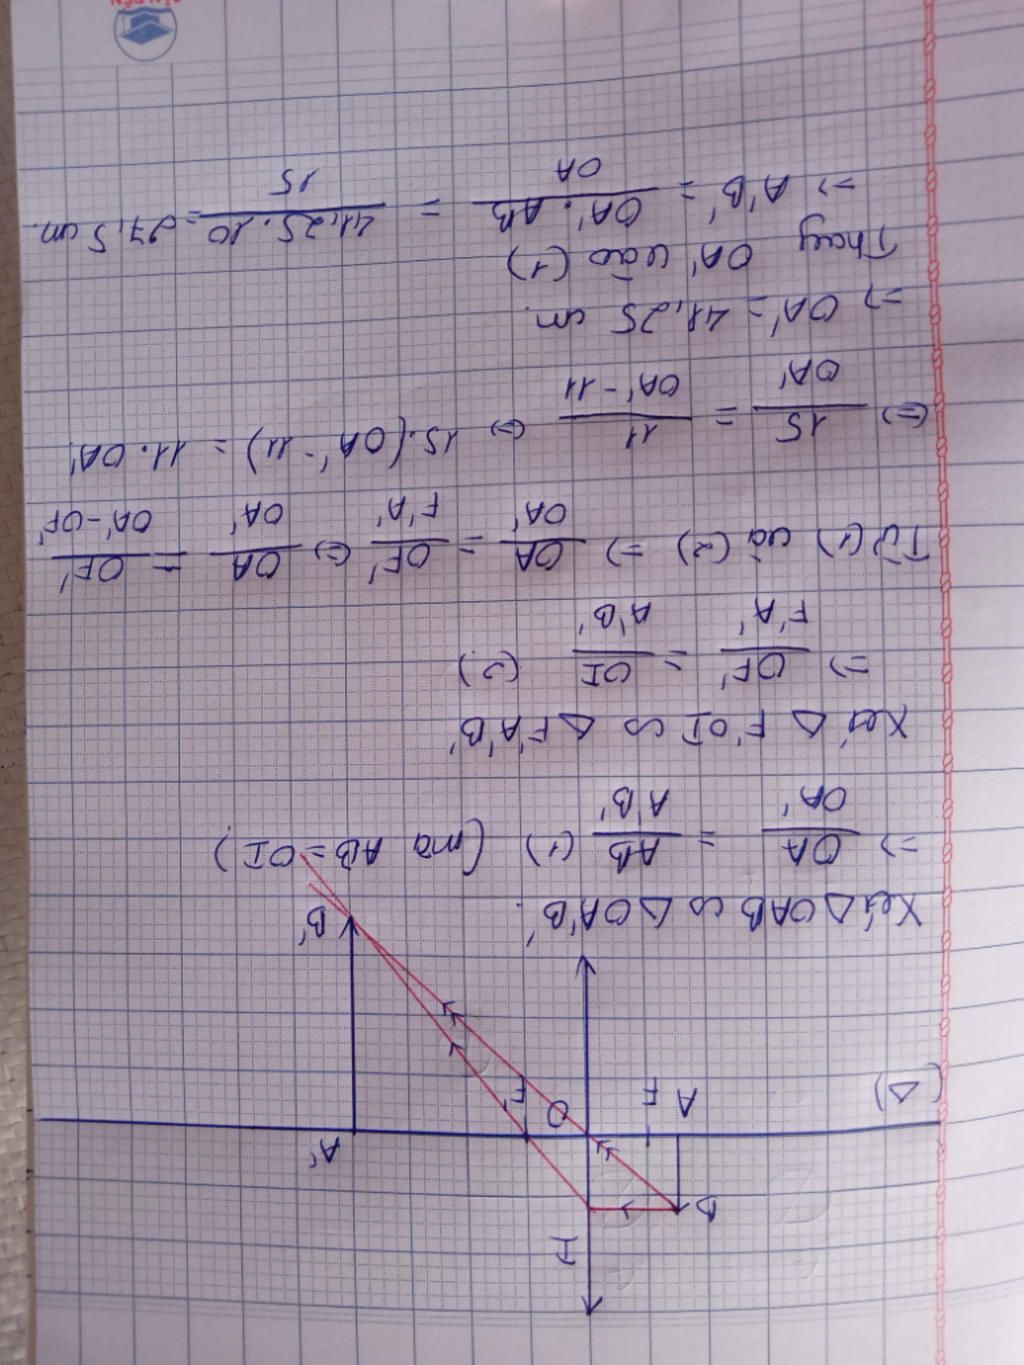 (Δ)
B
I
A
F
O
F'
A'
B'
Xét Δ OAB ∽ Δ OA'B'
=> OA/OA' = AB/A'B' (1) (mà AB = OI)
Xét Δ F'OI ∽ Δ F'A'B'
=> OF'/F'A' = OI/A'B' (2)
Từ (1) và (2) => OA/OA' = OF'/F'A' (=) OA/OA' = OF'/OA'-OF'
(=) 15/OA' = 11/OA'-11 (=) 15.(OA'-11) = 11.OA'
=> OA' = 41,25 cm.
Thay OA' vào (1)
=> A'B' = OA'.AB/OA = 41,25.10/15 = 27,5 cm.